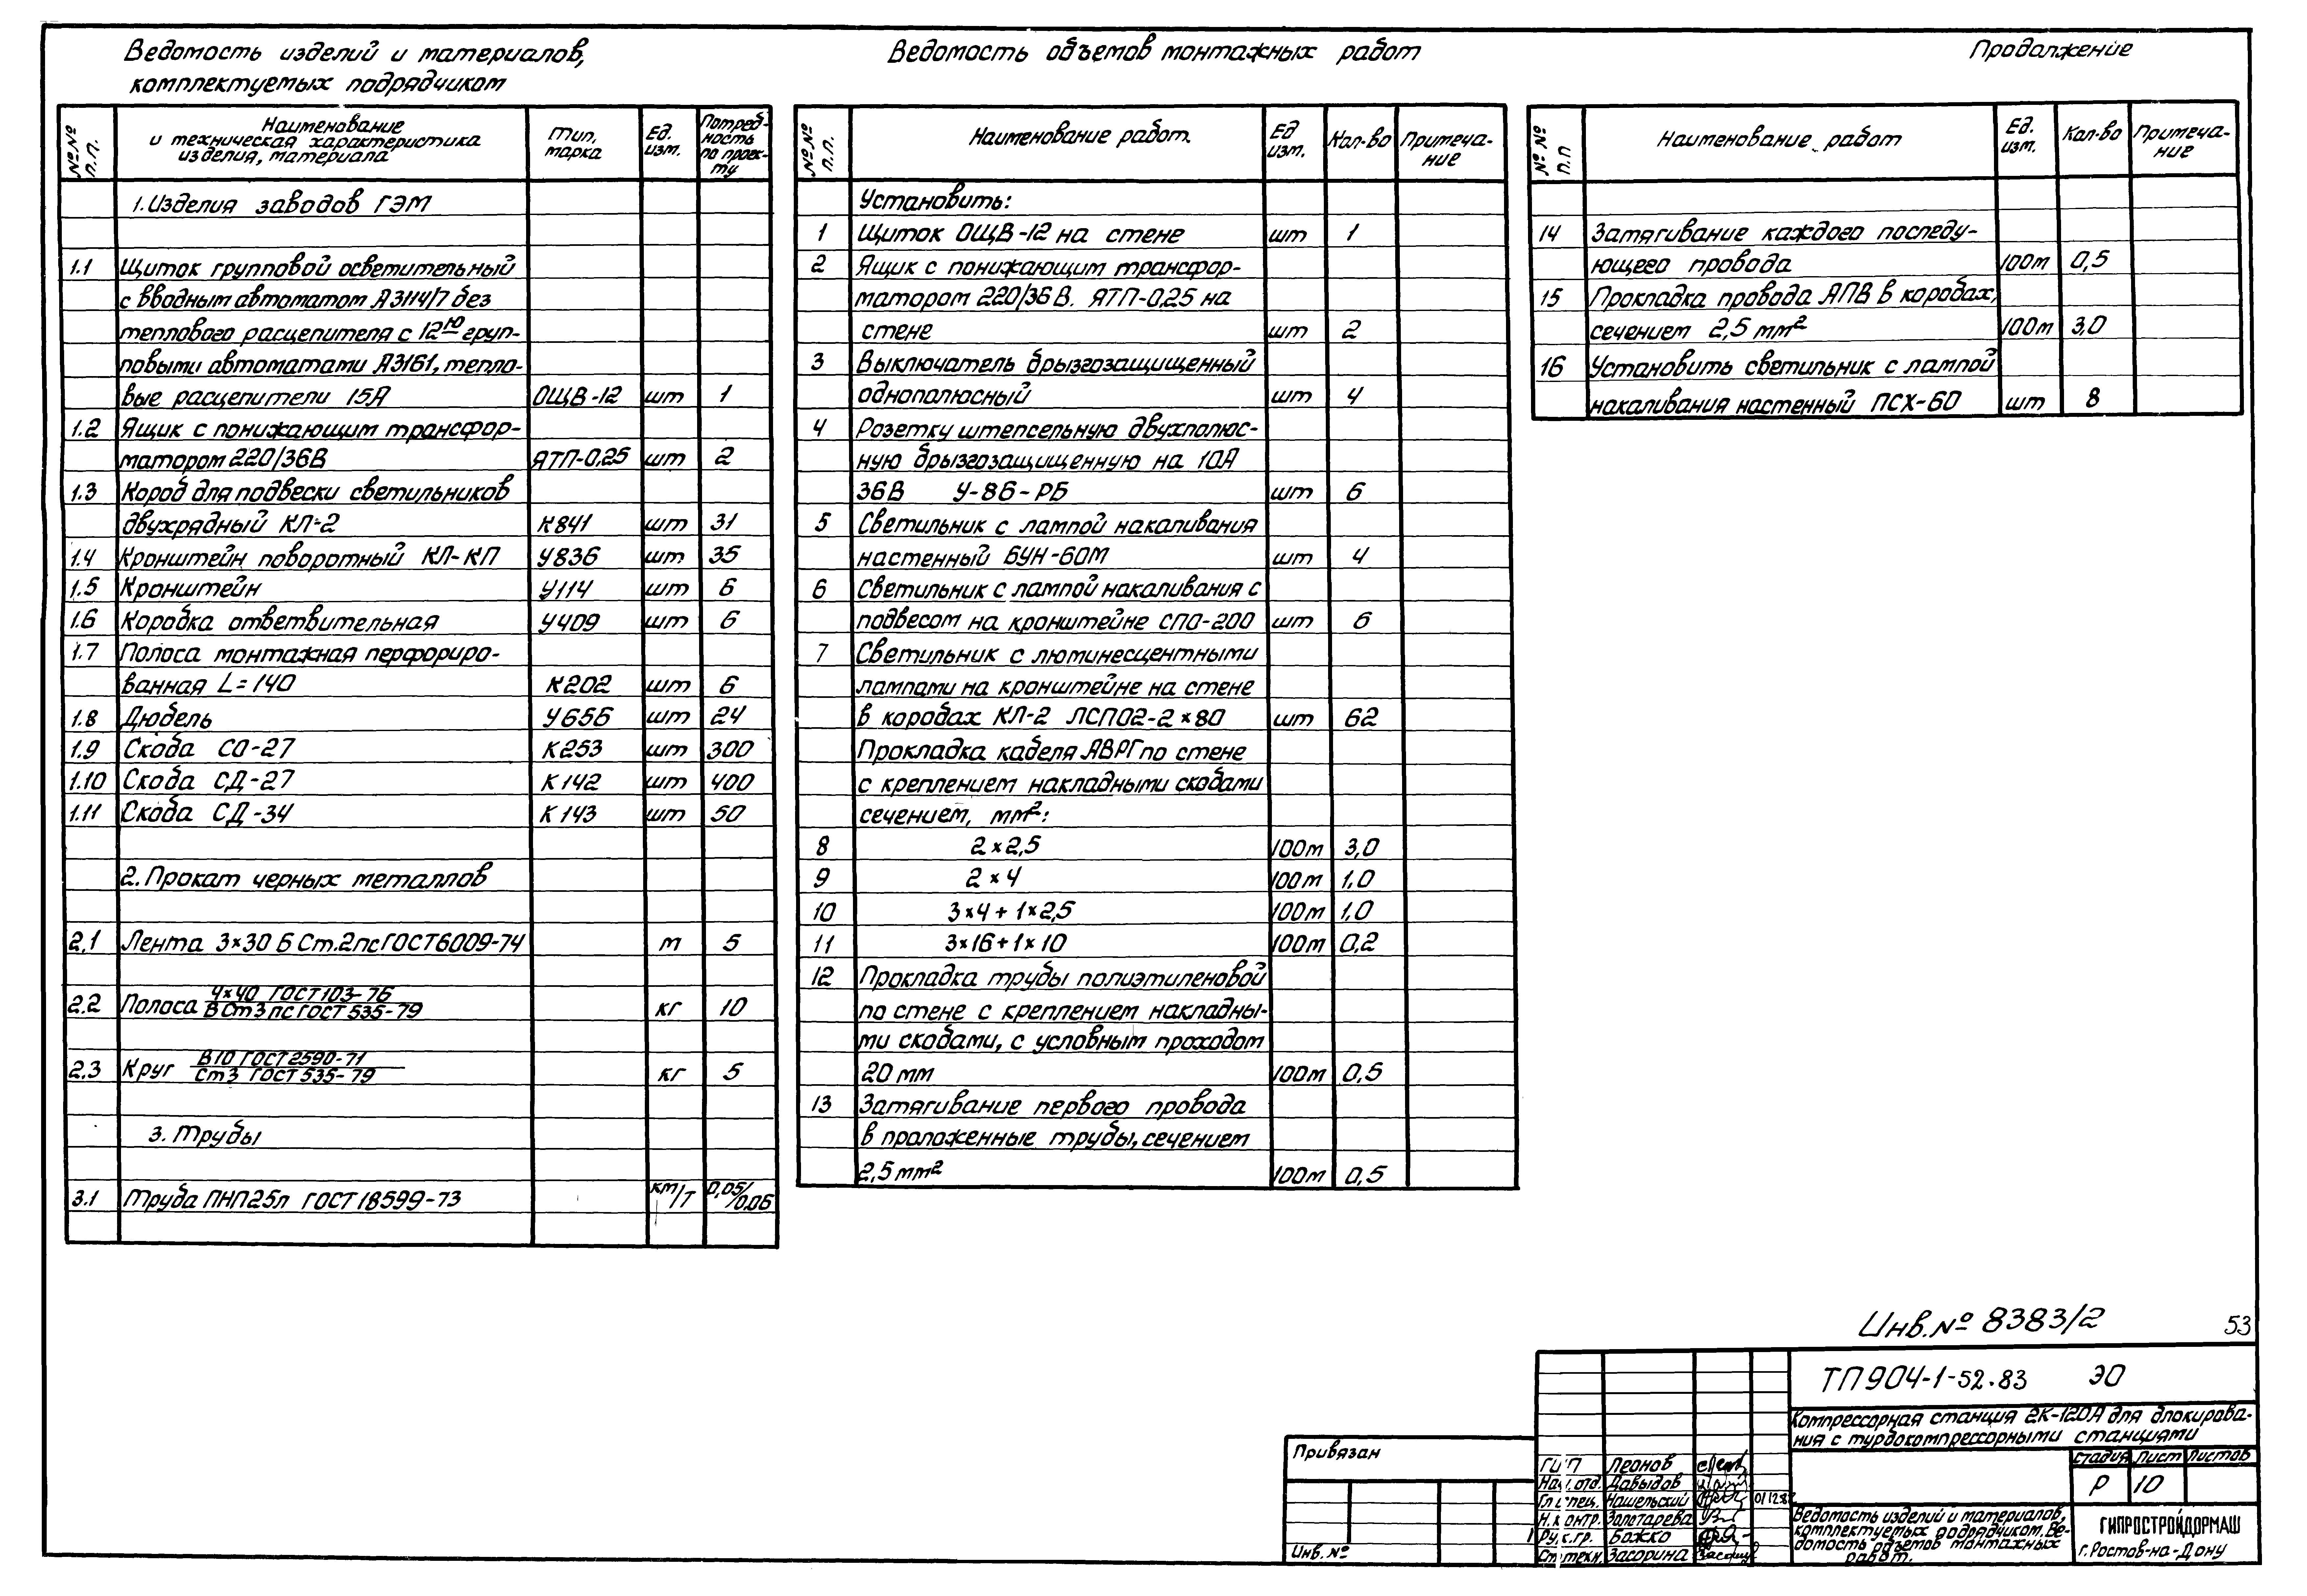 Ведомость изделий и материалов,
комплектуемых подрядчиком
№№ п.п. Наименование и техническая характеристика изделия, материала Тип, марка Ед. изм. Потребность по проекту
1. Изделия заводов ГЭМ
1.1 Щиток групповой осветительный
с вводным автоматом А3114/7 без
теплового расцепителя с 12ю груп-
повыми автоматами А3161, тепло-
вые расцепители 15А ОЩВ-12 шт 1
1.2 Ящик с понижающим трансфор-
матором 220/36В ЯТП-0,25 шт 2
1.3 Короб для подвески светильников
двухрядный КЛ-2 К841 шт 31
1.4 Кронштейн поворотный КЛ-КП У836 шт 35
1.5 Кронштейн У114 шт 6
1.6 Коробка ответвительная У409 шт 6
1.7 Полоса монтажная перфориро-
ванная L=140 К202 шт 6
1.8 Дюбель У656 шт 24
1.9 Скоба СО-27 К253 шт 300
1.10 Скоба СД-27 К142 шт 400
1.11 Скоба СД-34 К143 шт 50
2. Прокат черных металлов
2.1 Лента 3×30 Б Ст.2пс ГОСТ6009-74 м 5
2.2 Полоса 4×40 ГОСТ 103-76 / ВСт3пс ГОСТ 535-79 кг 10
2.3 Круг В10 ГОСТ 2590-71 / Ст3 ГОСТ 535-79 кг 5
3. Трубы
3.1 Труба ПНП25л ГОСТ 18599-73 км/т 0,05/0,06
Ведомость объемов монтажных работ
№№ п.п. Наименование работ. Ед изм. Кол-во Примеча-
ние
Установить:
1 Щиток ОЩВ-12 на стене шт 1
2 Ящик с понижающим трансфор-
матором 220/36В. ЯТП-0,25 на
стене шт 2
3 Выключатель брызгозащищенный
однополюсный шт 4
4 Розетку штепсельную двухполюс-
ную брызгозащищенную на 10А
36В У-86-РБ шт 6
5 Светильник с лампой накаливания
настенный БУН-60М шт 4
6 Светильник с лампой накаливания с
подвесом на кронштейне СПО-200 шт 6
7 Светильник с люминесцентными
лампами на кронштейне на стене
в коробах КЛ-2 ЛСП02-2×80 шт 62
Прокладка кабеля АВРГ по стене
с креплением накладными скобами
сечением, мм²:
8 2×2,5 100м 3,0
9 2×4 100м 1,0
10 3×4+1×2,5 100м 1,0
11 3×16+1×10 100м 0,2
12 Прокладка трубы полиэтиленовой
по стене с креплением накладны-
ми скобами, с условным проходом
20 мм 100м 0,5
13 Затягивание первого провода
в проложенные трубы, сечением
2,5 мм² 100м 0,5
Продолжение
№№ п.п Наименование работ Ед. изм. Кол-во Примеча-
ние
14 Затягивание каждого последу-
ющего провода 100м 0,5
15 Прокладка провода АПВ в коробах,
сечением 2,5 мм² 100м 3,0
16 Установить светильник с лампой
накаливания настенный ПСХ-60 шт 8
Инв.№ 8383/2 53
ТП904-1-52.83 ЭО
Компрессорная станция 2К-120А для блокирова-
ния с турбокомпрессорными станциями
Привязан
Инв. №
ГИП Леонов
Нач.отд. Давыдов
Гл спец. Нашельский
Н.контр. Золотарева
Рук.гр. Божко
Ст.техн. Засорина
Стадия Лист Листов
Р 10
Ведомость изделий и материалов,
комплектуемых подрядчиком. Ве-
домость объемов монтажных
работ.
ГИПРОСТРОЙДОРМАШ
г.Ростов-на-Дону